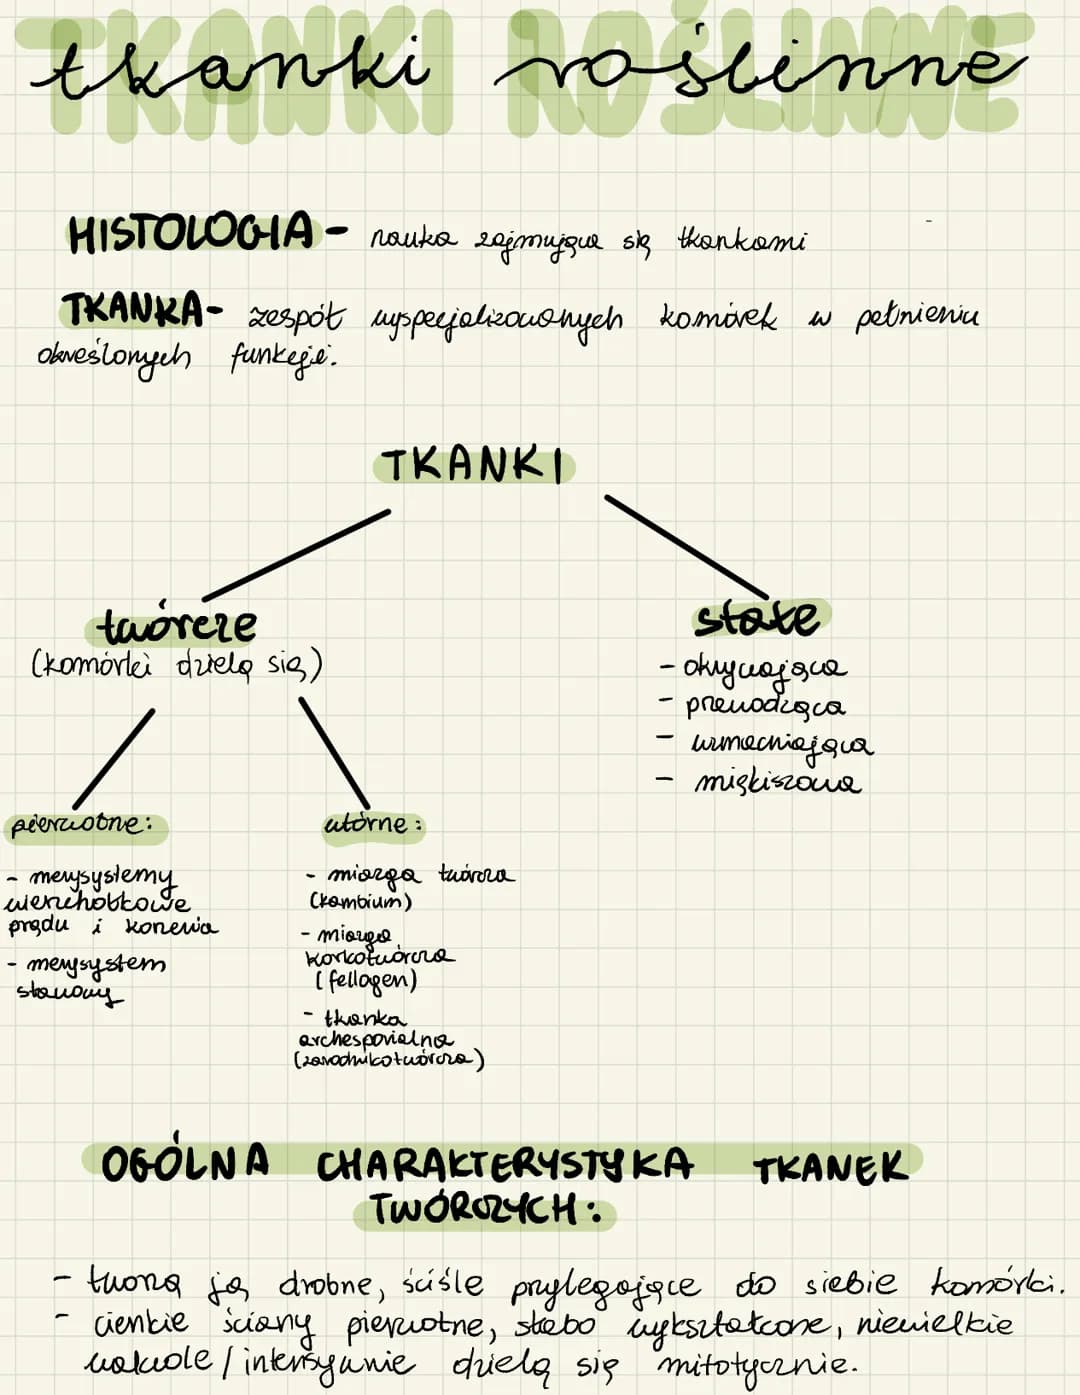 TKANKI ROŚLINNE
tkanki roślinne
HISTOLOGIA - nauka zajmująca się tkankami
TKANKA - zespół wyspecjalizowanych komórek w pełnieniu
określonych funkcji.
TKANKI
twórcze
(komórki dzielą się)
stałe
- okrywająca
- przewodząca
- wzmacniająca
- miękiszowa
pierwotne:
- merystemy
wierzchołkowe
prądu i korzenia
- merysystem
stanowy
wtórne:
- miazga twórcza
(kambium)
- miazga
korkotwórcza
(fellogen)
- tkanka
archesporialna
(zarodnikotwórcza)
OGÓLNA CHARAKTERYSTYKA TKANEK
TWÓRCZYCH:
- tworzą ją drobne, ściśle przylegające do siebie komórki.
- cienkie ściany pierwotne, słabo wykształcone, niewielkie
wakuole / intensywnie dzielą się mitotycznie.